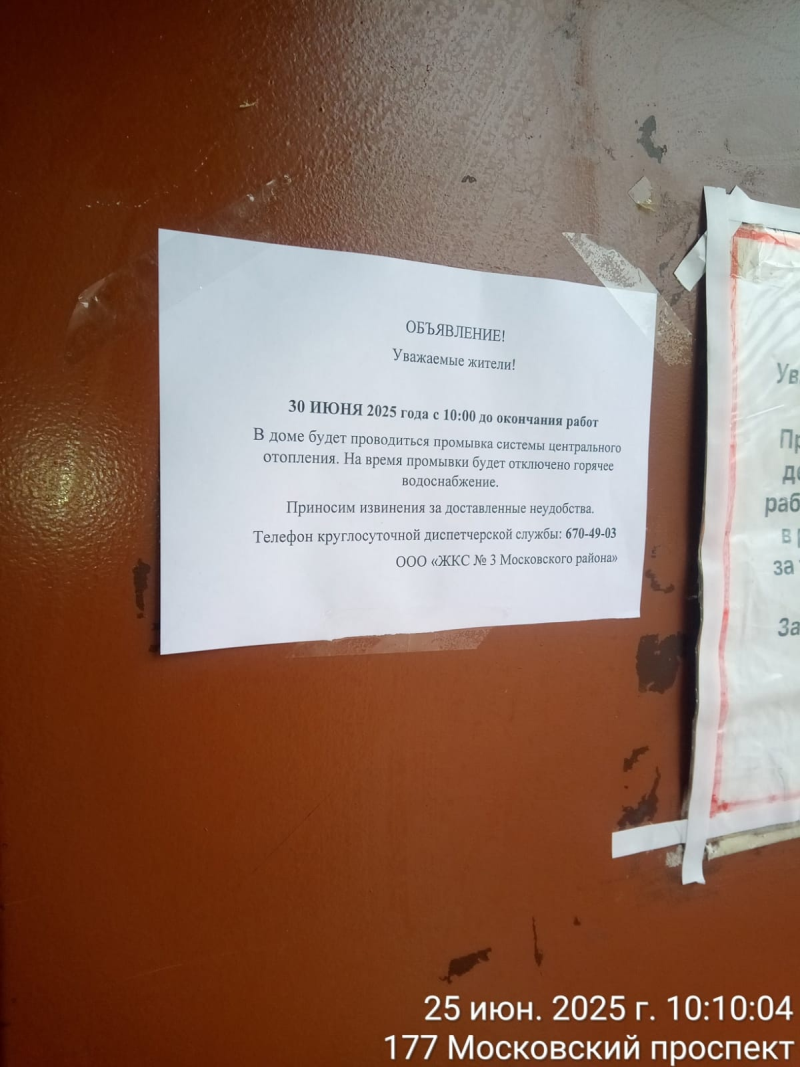 ОБЪЯВЛЕНИЕ!
Уважаемые жители!
30 ИЮНЯ 2025 года с 10:00 до окончания работ
В доме будет проводиться промывка системы центрального
отопления. На время промывки будет отключено горячее
водоснабжение.
Приносим извинения за доставленные неудобства.
Телефон круглосуточной диспетчерской службы: 670-49-03
ООО «ЖКС № 3 Московского района»
в
за
25 июн. 2025 г. 10:10:04
177 Московский проспект